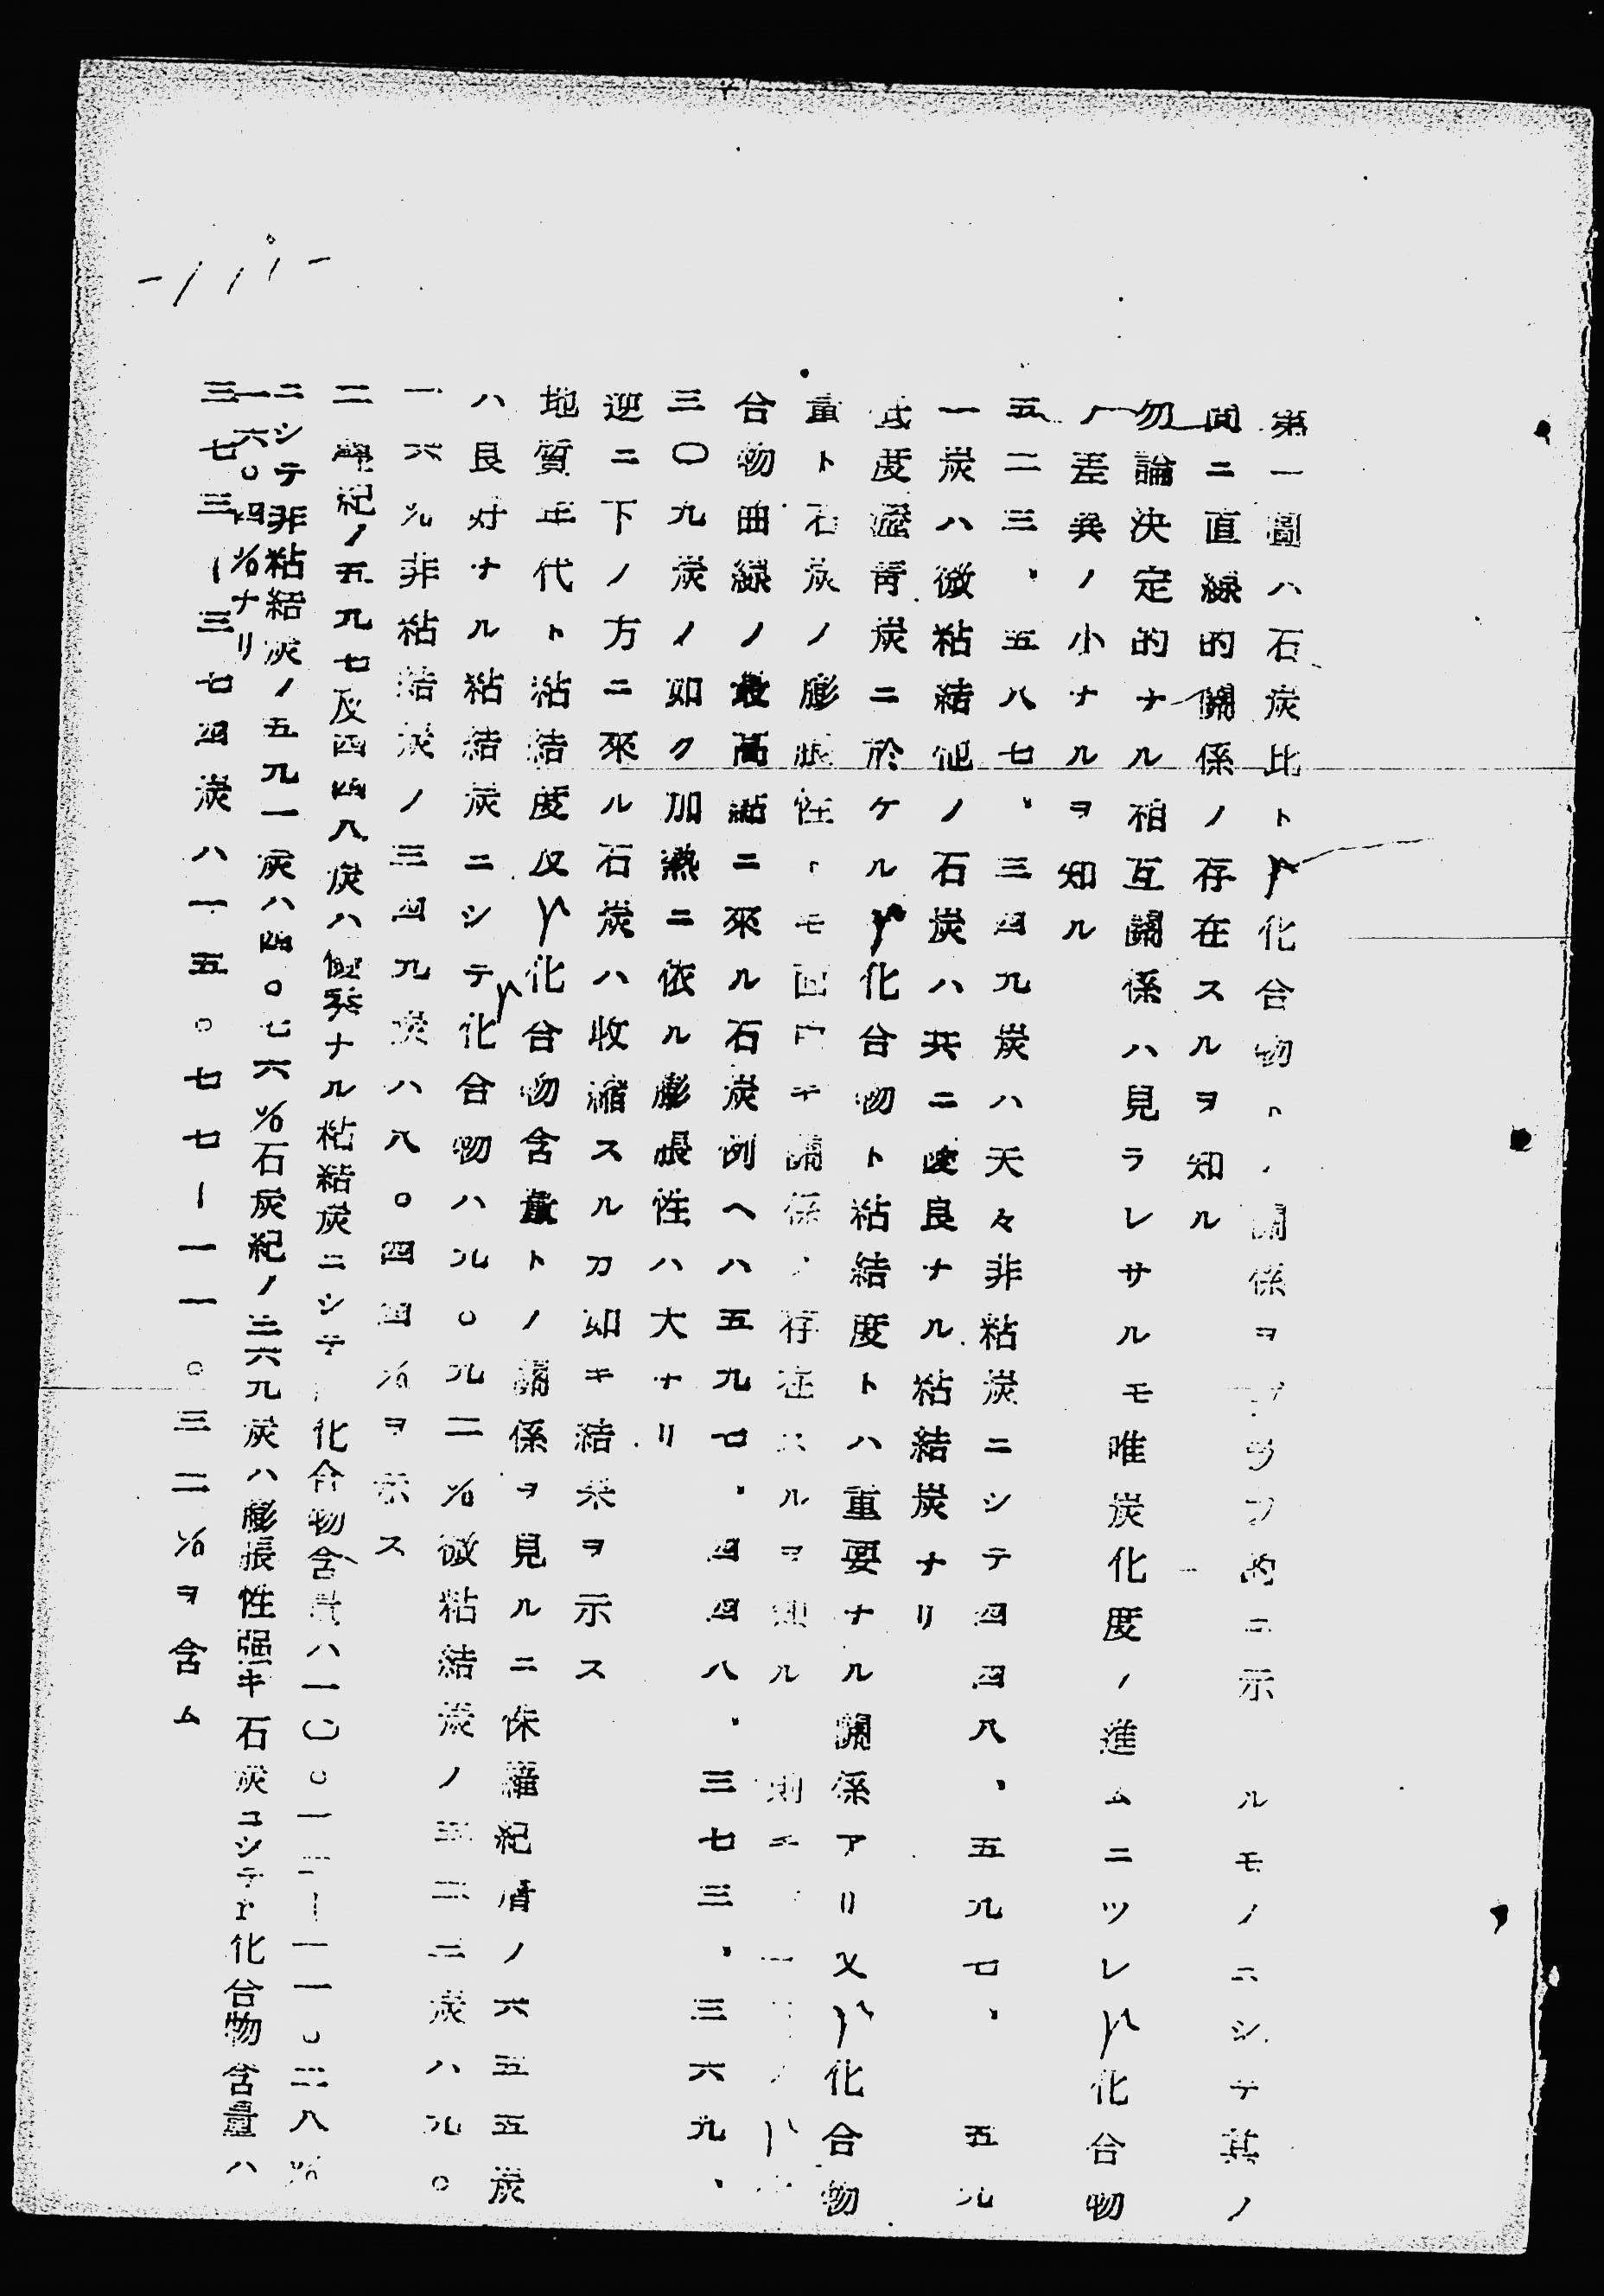 第一圖ハ石炭比トr化合物トノ關係ヲグラフ的ニ示 ルモノニシテ其ノ
間ニ直線的關係ノ存在スルヲ知ル
勿論決定的ナル相互關係ハ見ラレサルモ唯炭化度ノ進ムニツレr化合物
ノ差異ノ小ナルヲ知ル
五二三、五八七、三四九炭ハ天々非粘炭ニシテ四四八、五九七、五九
一炭ハ微粘結他ノ石炭ハ共ニ良ナル粘結炭ナリ
度瀝靑炭ニ於ケルr化合物ト粘結度トハ重要ナル關係アリ又r化合物
量ト石炭ノ膨脹性トモ 關係ノ存在スルヲ知ル 則チ
合物曲線ノ最高點ニ來ル石炭例ヘハ五九七、四四八、三七三、三六九、
三〇九炭ノ如ク加熱ニ依ル膨脹性ハ大ナリ
逆ニ下ノ方ニ來ル石炭ハ收縮スルカ如キ結果ヲ示ス
地質年代ト粘結度及r化合物含量トノ關係ヲ見ルニ侏羅紀層ノ六五五炭
ハ良好ナル粘結炭ニシテr化合物ハ九。九二%微粘結炭ノ五二三炭ハ九。
一六%非粘結炭ノ三四九炭ハ八。四四%ヲ示ス
二疊紀ノ五九七及四四八炭ハ ナル粘結炭ニシテ 化合物含量ハ一〇。一 ー一一。 八%
ニシテ非粘結炭ノ五九一炭ハ四。七六%石炭紀ノ三六九炭ハ膨張性强キ石炭ニシテr化合物含量ハ
一六。四%ナリ
三七三ー三七四炭ハ一五。七七ー一一。三二%ヲ含ム